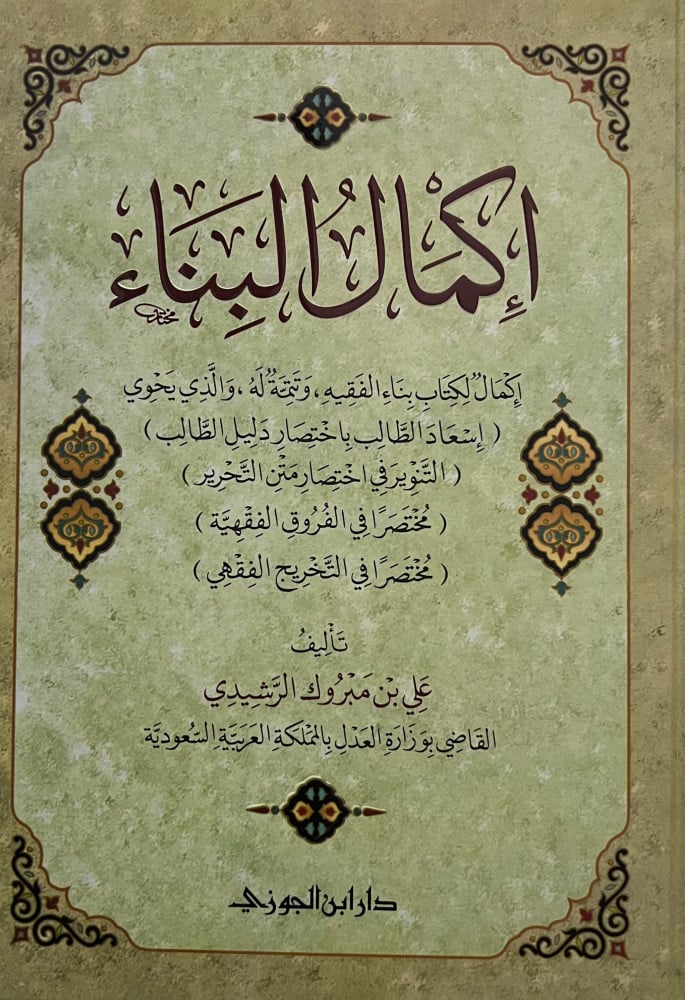 إِكْمَالُ البِنَاء
مختار
إِكْمَالٌ لِكِتَابِ بِنَاءِ الفَقِيهِ، وَتَتِمَّةٌ لَهُ، وَالَّذِي يَحْوِي
( إِسْعَادَ الطَّالِبِ بِاخْتِصَارِ دَلِيلِ الطَّالِبِ )
( التَّنْوِيرَ فِي اخْتِصَارِ مَتْنِ التَّحْرِيرِ )
( مُخْتَصَرًا فِي الفُرُوقِ الفِقْهِيَّةِ )
( مُخْتَصَرًا فِي التَّخْرِيجِ الفِقْهِي )
تَأْلِيفُ
عَلِي بْن مَبْرُوك الرَّشِيدِي
القَاضِي بِوَزَارَةِ العَدْلِ بِالمَمْلَكَةِ العَرَبِيَّةِ السُّعُودِيَّة
دار ابن الجوزي